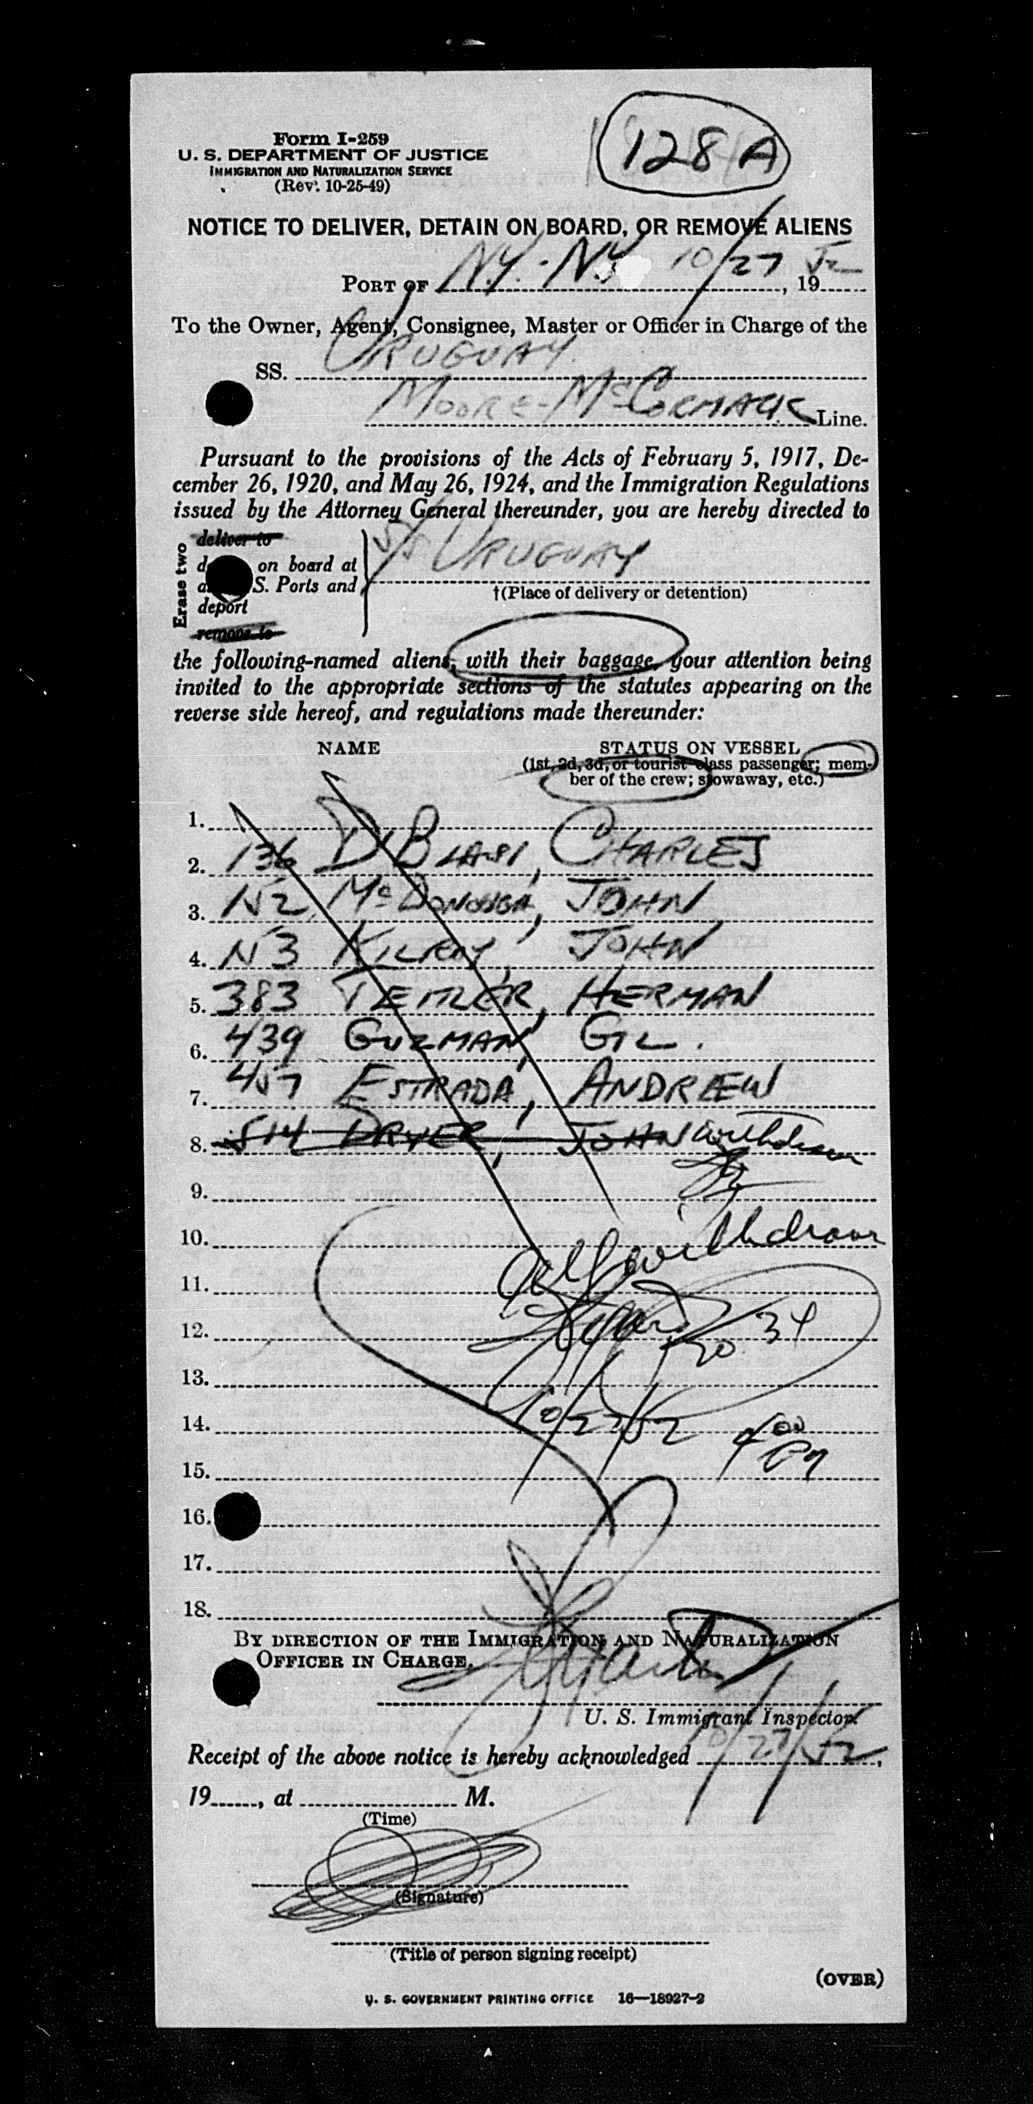 128 A
Form I-259
U. S. DEPARTMENT OF JUSTICE
IMMIGRATION AND NATURALIZATION SERVICE
(Rev. 10-25-49)
NOTICE TO DELIVER, DETAIN ON BOARD, OR REMOVE ALIENS
PORT OF N.Y. - N.Y. 10/27, 1952
To the Owner, Agent, Consignee, Master or Officer in Charge of the
SS. URUGUAY
MOORE-McCORMACK Line.
Pursuant to the provisions of the Acts of February 5, 1917, De-
cember 26, 1920, and May 26, 1924, and the Immigration Regulations
issued by the Attorney General thereunder, you are hereby directed to
Erase two
deliver to
on board at S/S URUGUAY
S. Ports and
†(Place of delivery or detention)
deport
remove to
the following-named aliens, with their baggage, your attention being
invited to the appropriate sections of the statutes appearing on the
reverse side hereof, and regulations made thereunder:
NAME STATUS ON VESSEL
(1st, 2d, 3d, or tourist class passenger; mem-
ber of the crew; stowaway, etc.)
1.
2. 136 D'BLASI, CHARLES
3. 152 McDONOUGH, JOHN
4. 153 KILROY, JOHN
5. 383 TEITLER, HERMAN
6. 439 GUZMAN, GIL.
7. 457 ESTRADA, ANDREW
8. 514 DRYER, JOHN withdrawn
9.
10. all withdrawn
11.
12. 34
13.
14. 10/27/52 4 00 PM
15.
16.
17.
18.
BY DIRECTION OF THE IMMIGRATION AND NATURALIZATION
OFFICER IN CHARGE.
U. S. Immigrant Inspector.
Receipt of the above notice is hereby acknowledged 10/27/52,
19......, at ...................... M.
(Time)
(Signature)
(Title of person signing receipt)
(OVER)
U. S. GOVERNMENT PRINTING OFFICE 16—18927-2